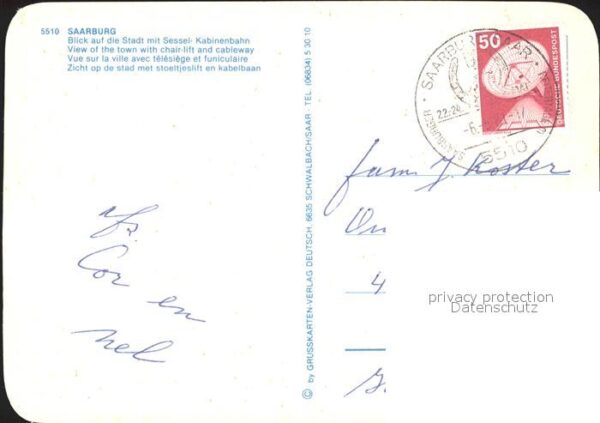 5510 SAARBURG
Blick auf die Stadt mit Sessel- Kabinenbahn
View of the town with chair-lift and cableway
Vue sur la ville avec télésiège et funiculaire
Zicht op de stad met stoeltjeslift en kabelbaan
afz.
Cor en
nel
© by GRUSSKARTEN-VERLAG DEUTSCH, 6635 SCHWALBACH/SAAR · TEL. (06834) 5 30 10
50
DEUTSCHE BUNDESPOST
SAARBURG
SAAR
5510
fam. J. Koster
On
4
privacy protection
Datenschutz